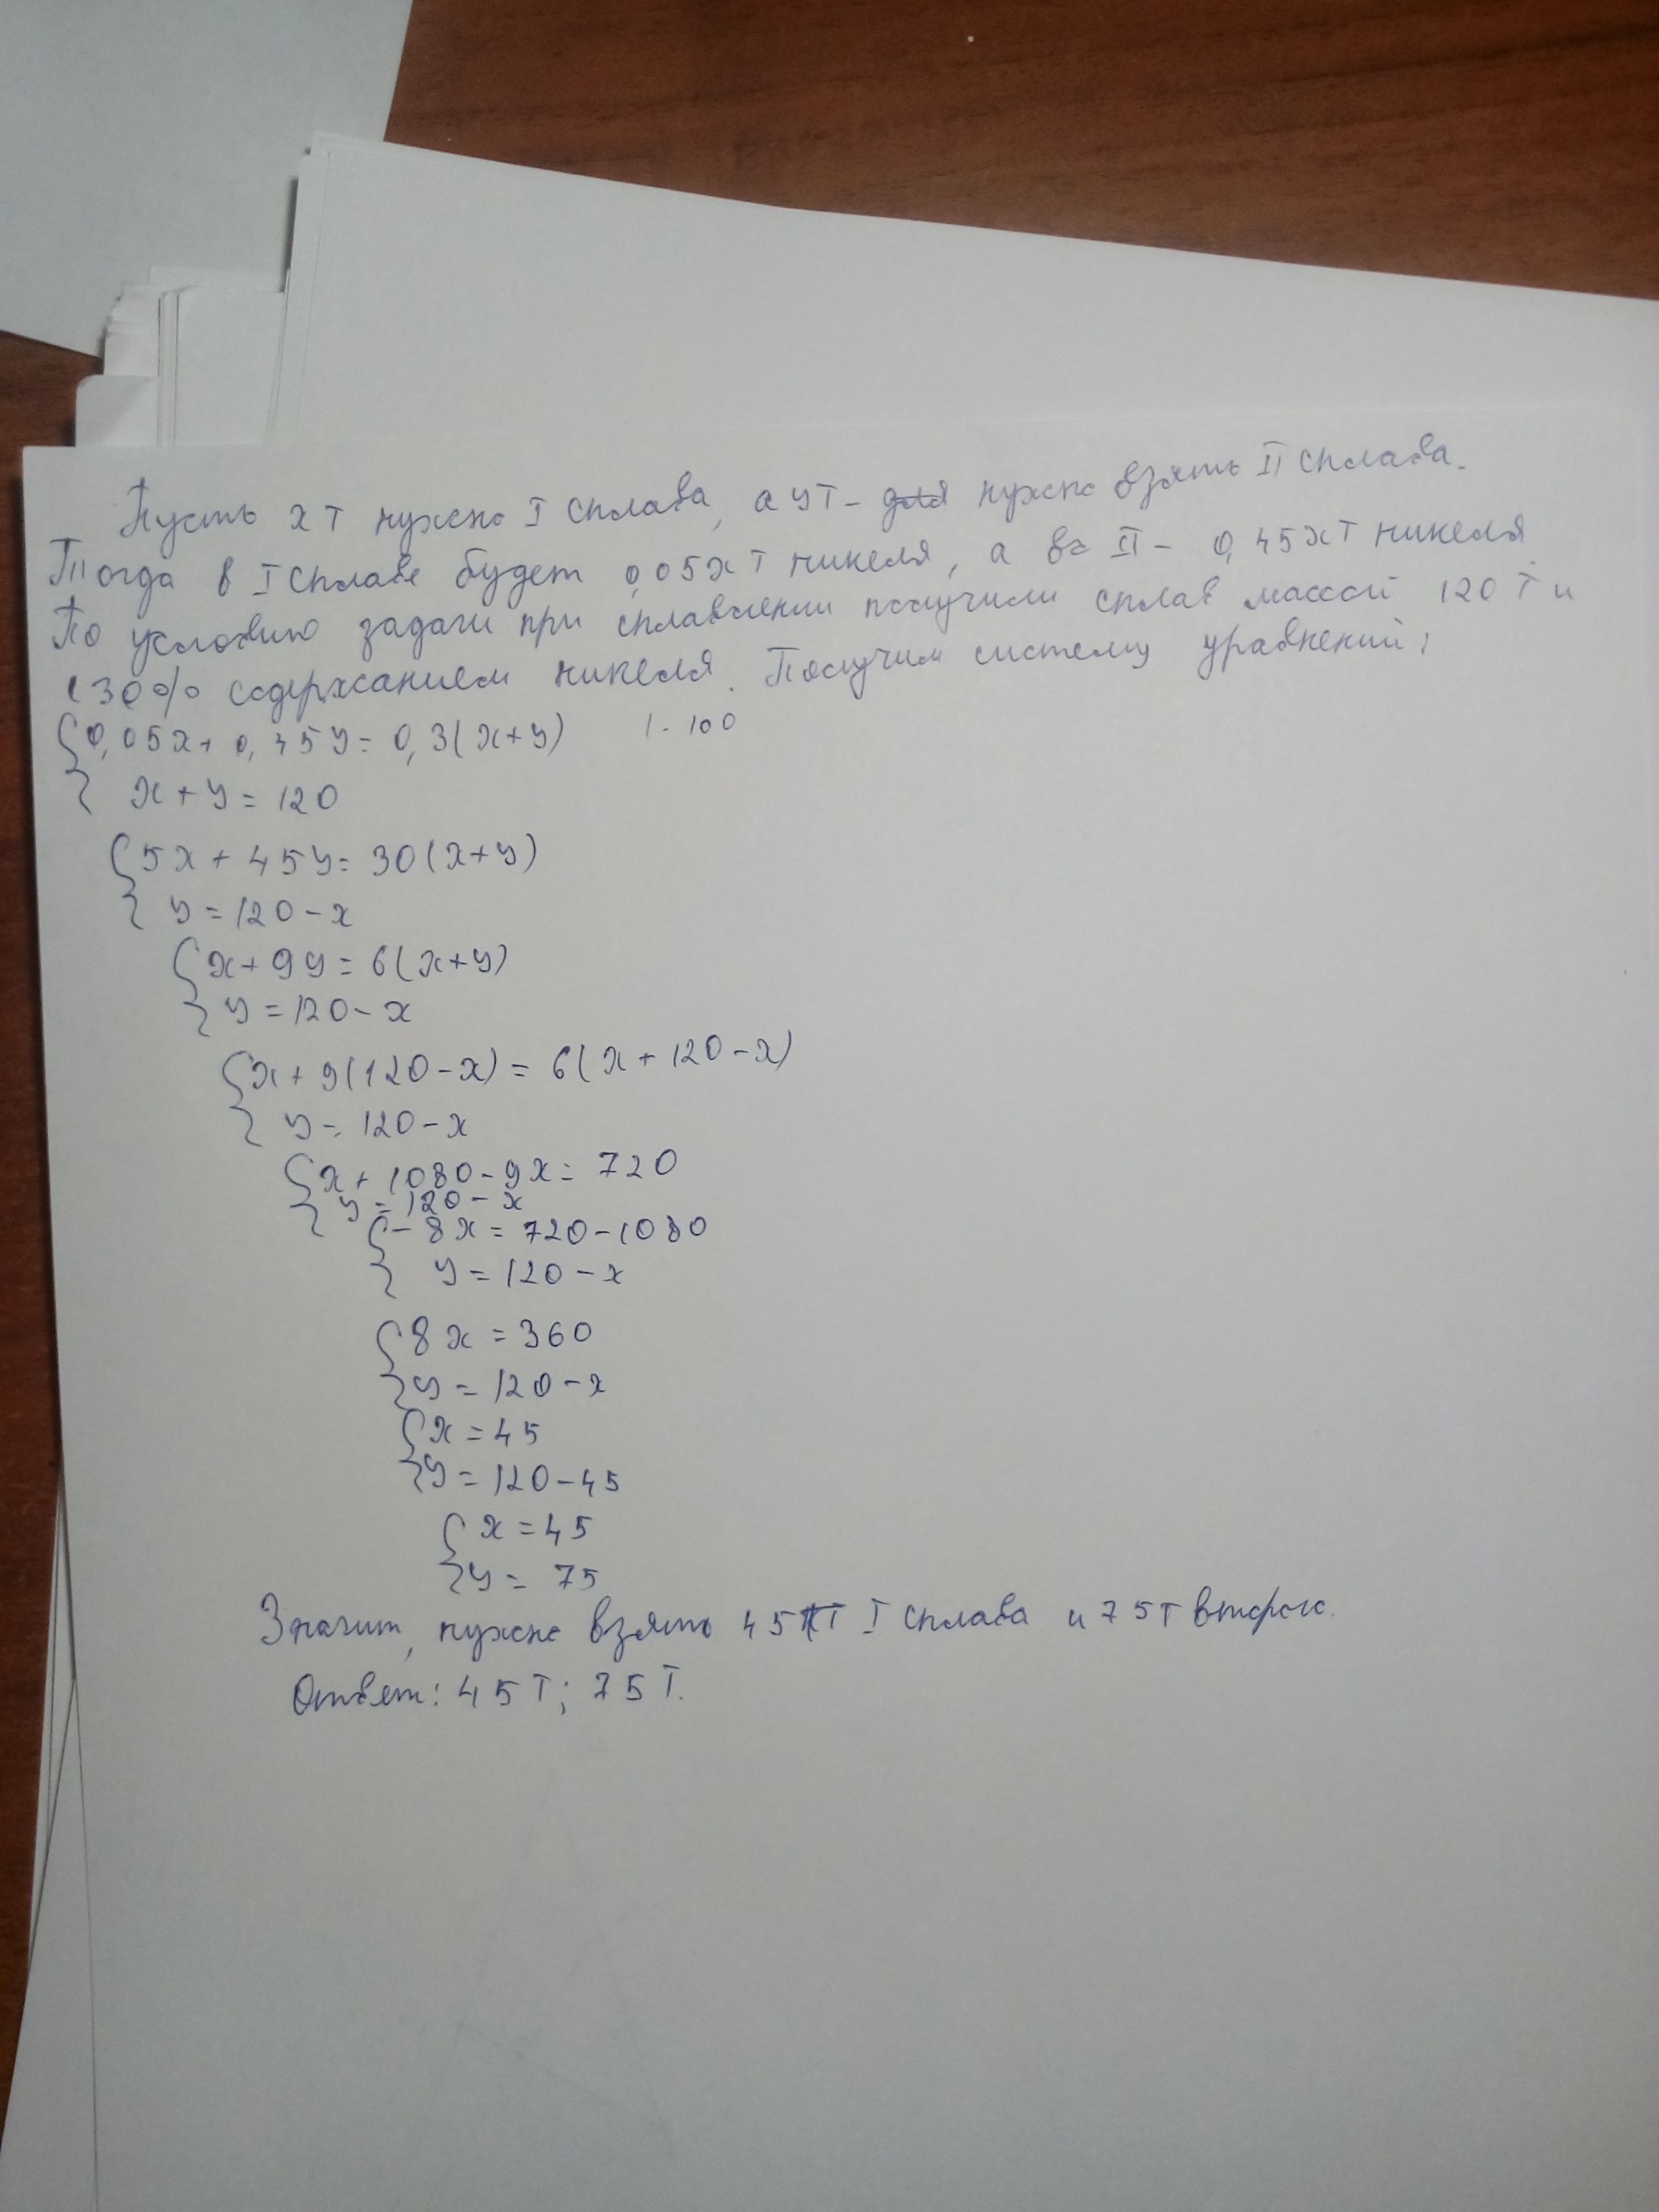 Пусть x т нужно I сплава, а y т – для нужно взять II сплава.
Тогда в I сплаве будет 0,05x т никеля, а во II – 0,45x т никеля.
По условию задачи при сплавлении получили сплав массой 120 т и
с 30% содержанием никеля. Получим систему уравнений:
0,05x + 0,45y = 0,3(x+y) |·100
x + y = 120
5x + 45y = 30(x+y)
y = 120 – x
x + 9y = 6(x+y)
y = 120 – x
x + 9(120 – x) = 6(x + 120 – x)
y = 120 – x
x + 1080 – 9x = 720
y = 120 – x
– 8x = 720 – 1080
y = 120 – x
8x = 360
y = 120 – x
x = 45
y = 120 – 45
x = 45
y = 75
Значит, нужно взять 45 т I сплава и 75 т второго.
Ответ: 45 т; 75 т.